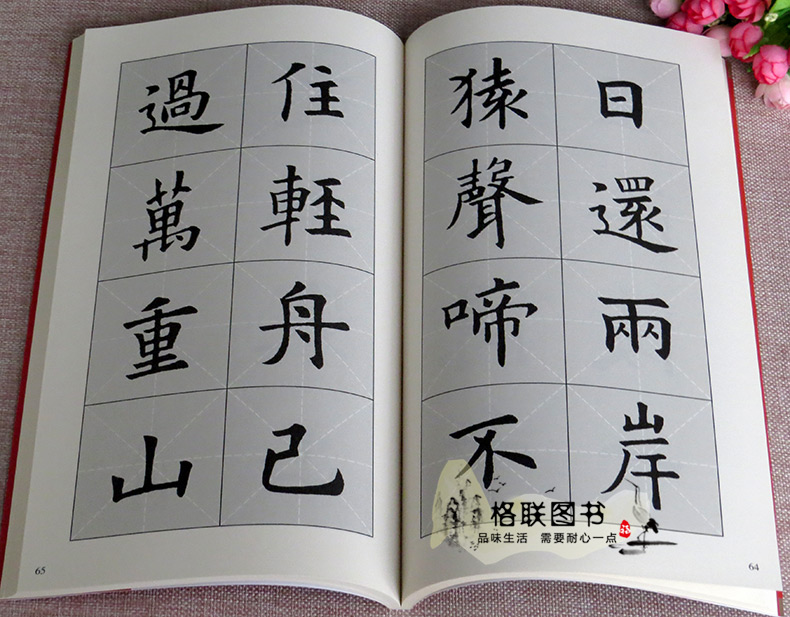 日還兩岸
猿聲啼不
64
住輕舟己
過萬重山
65
格联图书
品味生活 需要耐心一点